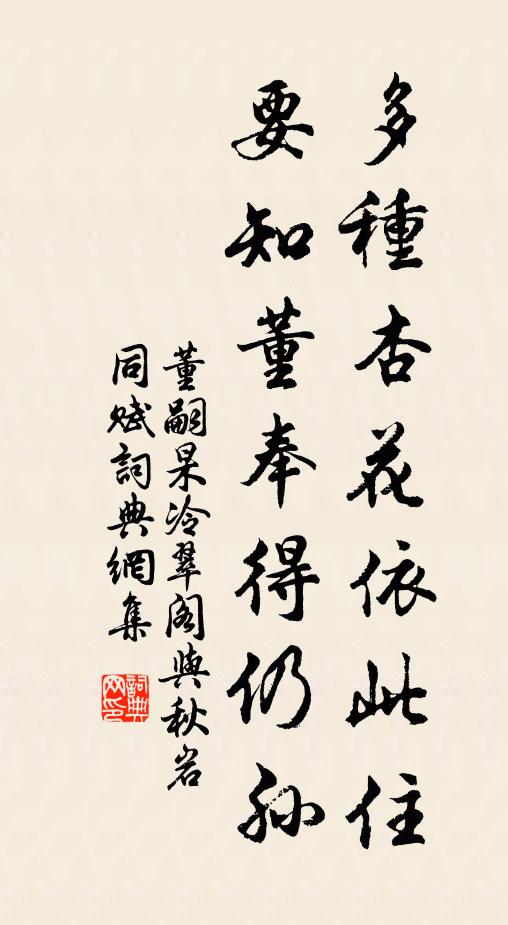 多種杏花依此住
要知董奉得仍孫
董嗣杲冷翠閣與秋岩
同賦詞典網集
詞典网印